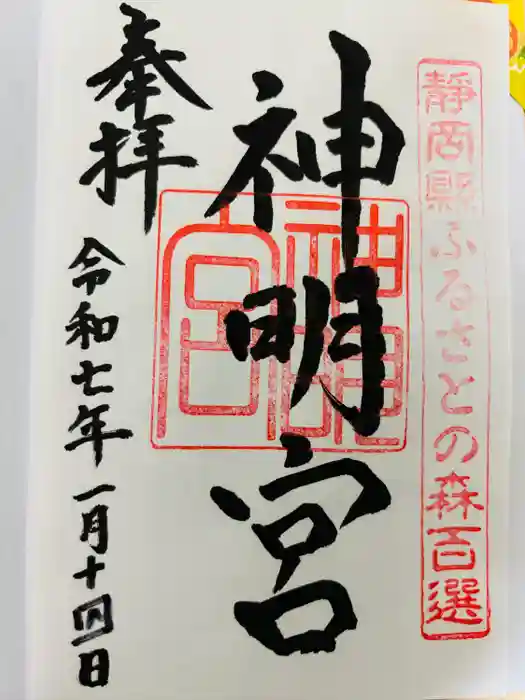 静岡縣ふるさとの森百選
神明宮
神明宮
奉拝
令和七年一月十四日